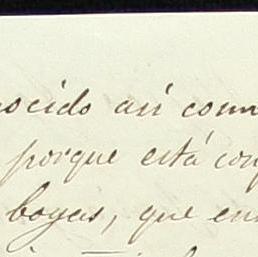 nocido así como
porque está con
boyas, que en